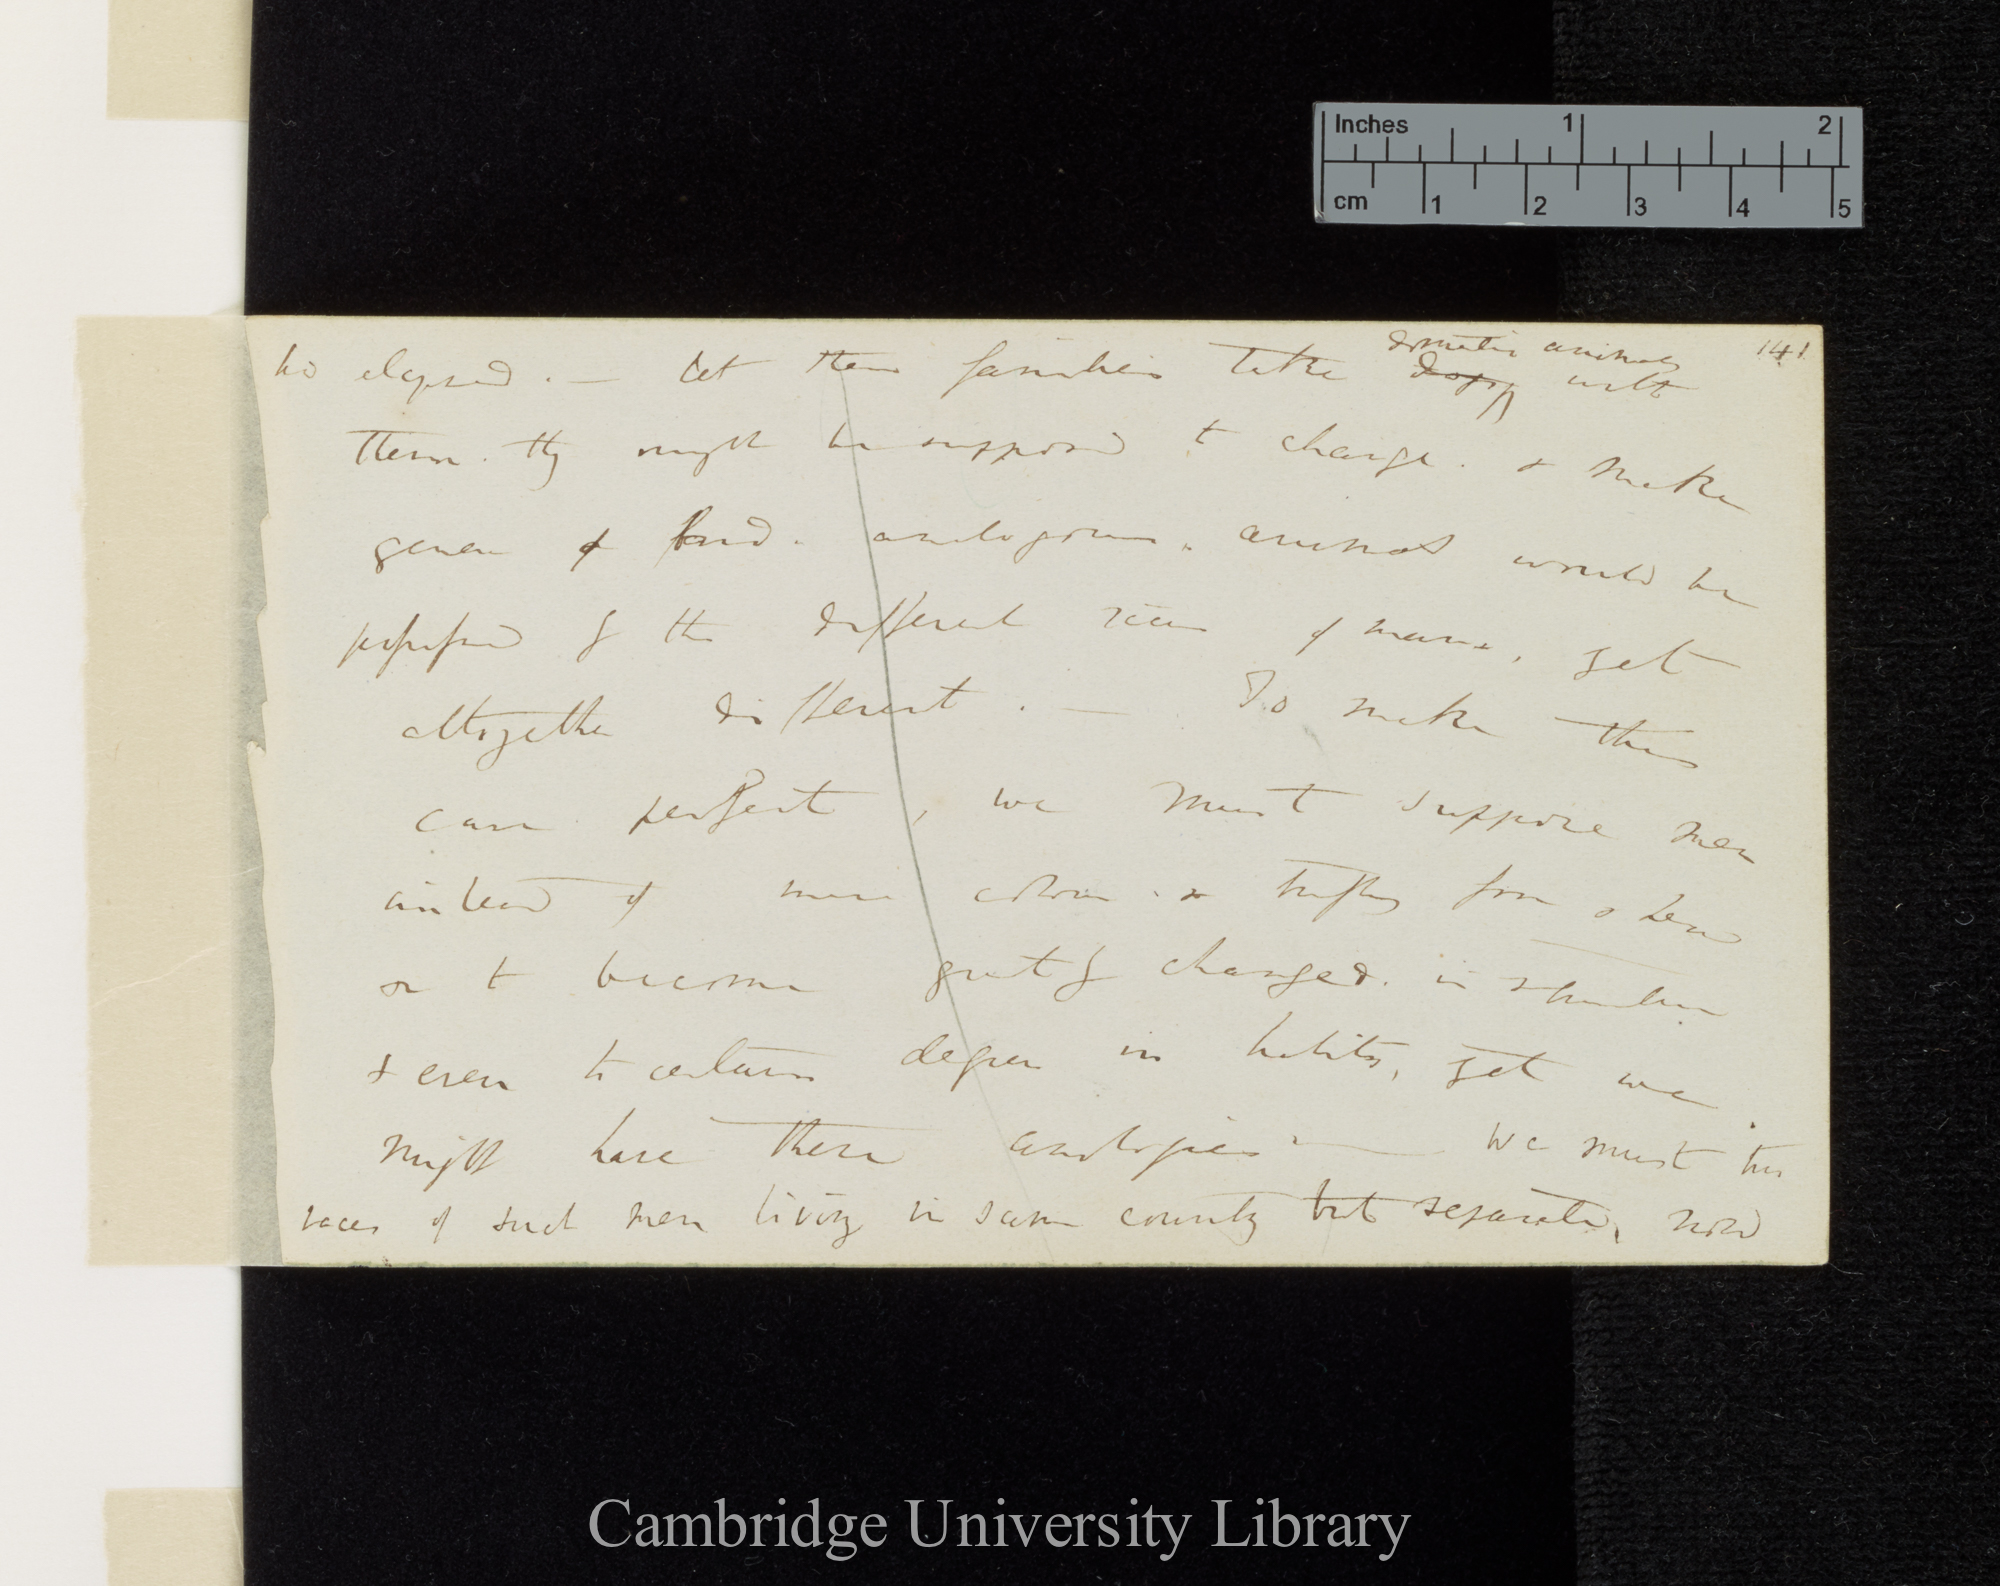 Inches 1 2
cm 1 2 3 4 5
141
domestic animals
be elapsed. — let these families take dogs with
them. they might be supposed to change. & make
genera & kind. analogous. animal would be
of the different races of man, yet
altogether different. — To make this
case perfect, we must suppose man
instead of mere colour. & form & head
so to become greatly changed. in structure
& even to certain degree in habits, yet we
might have these analogies — We must
races of such men living in same country but separate, now
Cambridge University Library